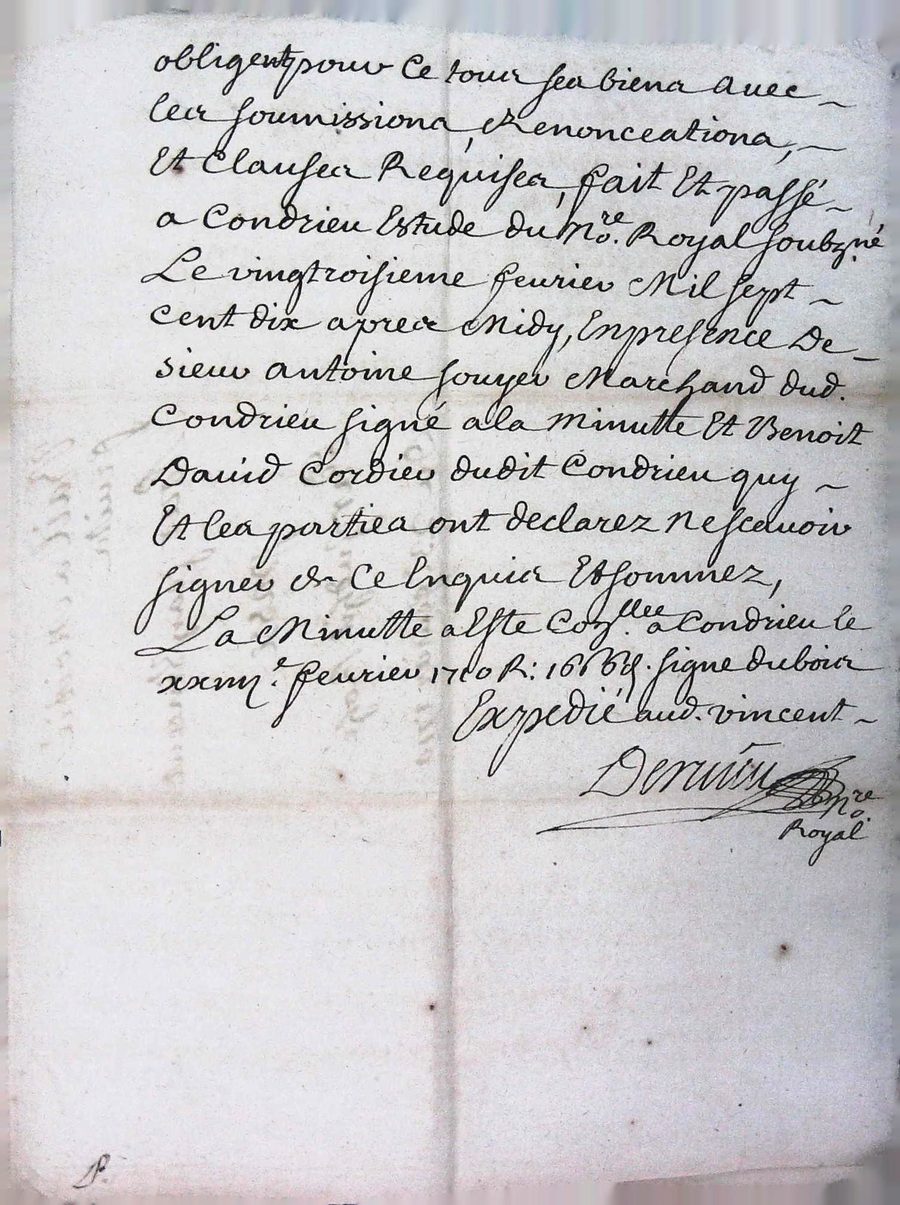 obligent pour ce tous ses biens avec
les soumissions, et Renonceations,
Et Clauses Requises, fait Et passé
a Condrieu Estude du No.re Royal soubz.né
Le vingtroisieme fevrier Mil sept
cent dix apres Midy, En presence De
sieur antoine Marchand dud.
Condrieu signé a la Minutte Et Benoit
David Cordier dudit Condrieu quy
Et les parties ont declarez ne scavoir
signer de ce Enquis Et sommez,
La Minutte a Este Coz.llee a Condrieu le
fevrier 1710 R: signe dubois
Expedié aud. vincent
No.re
Royal